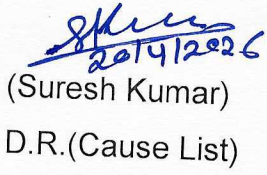 20/4/2026
(Suresh Kumar)
D.R.(Cause List)